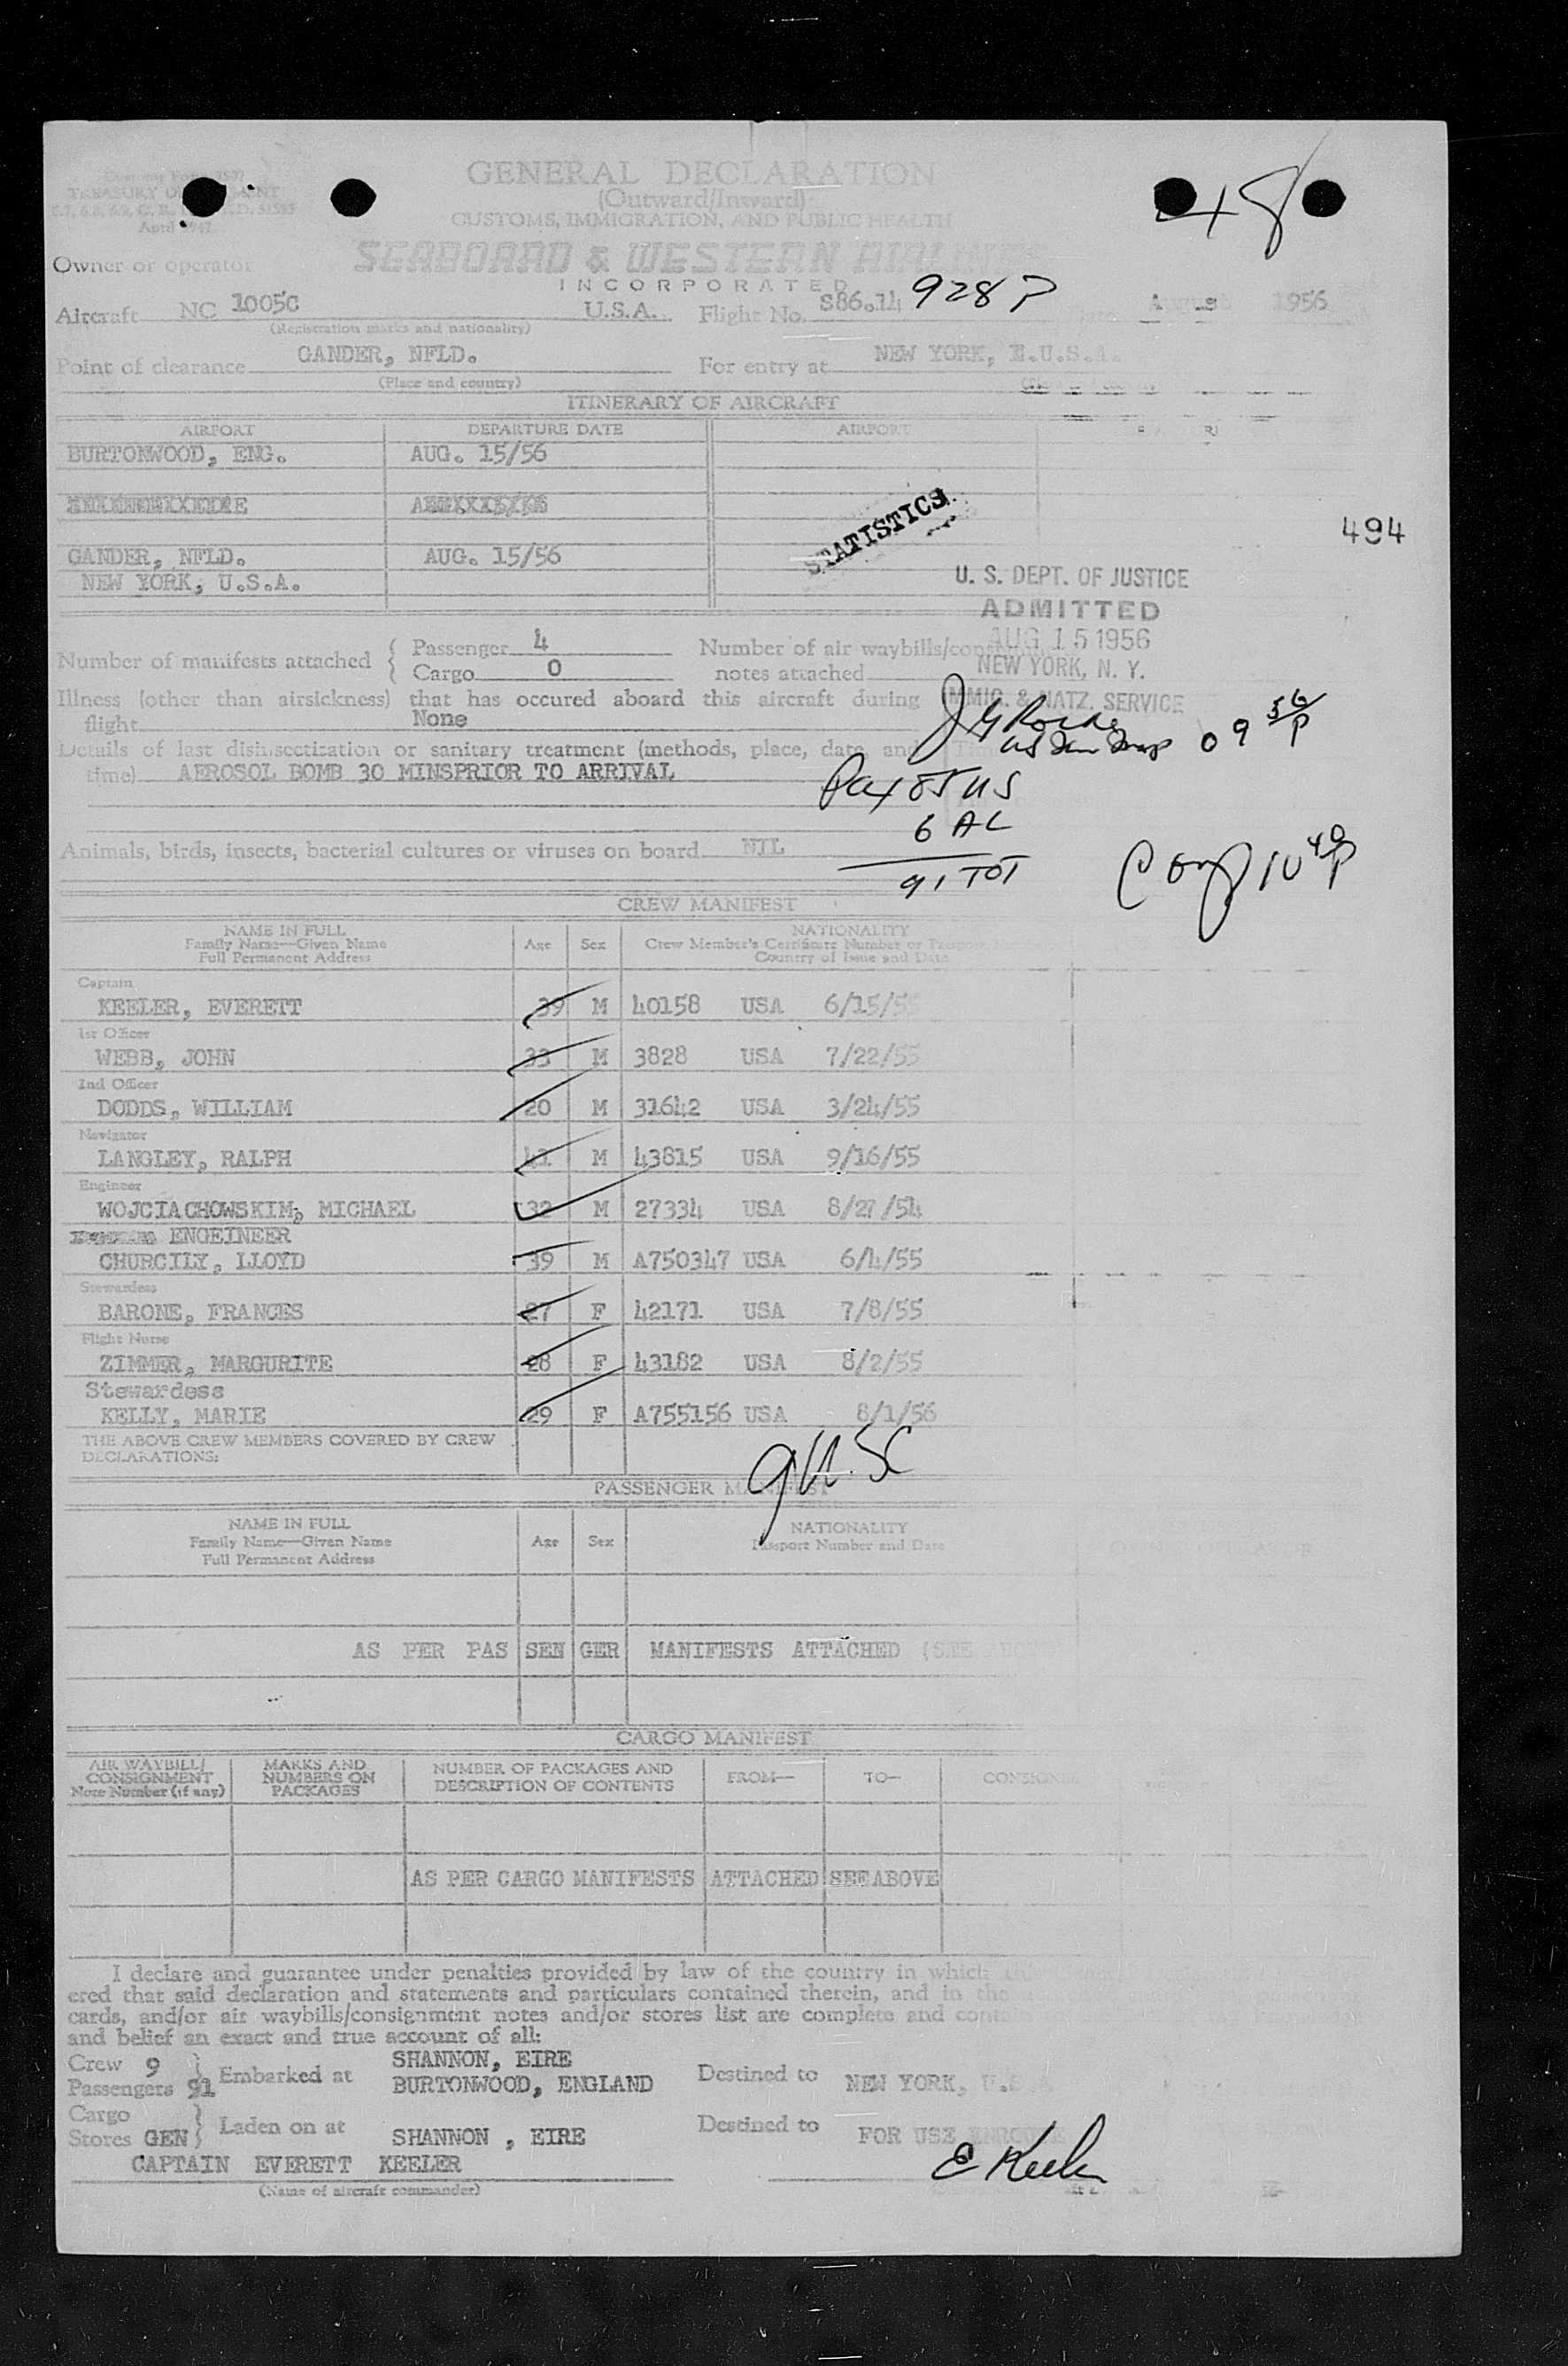 GENERAL DECLARATION
(Outward/Inward)
CUSTOMS, IMMIGRATION, AND PUBLIC HEALTH
April 1947
48
Owner or operator SEABOARD & WESTERN AIRLINES
INCORPORATED
Aircraft NC 1005C U.S.A. Flight No. S86.14 928 P August 1956
(Registration marks and nationality)
Point of clearance GANDER, NFLD. For entry at NEW YORK, N.U.S.A.
(Place and country)
ITINERARY OF AIRCRAFT
AIRPORT DEPARTURE DATE AIRPORT
BURTONWOOD, ENG. AUG. 15/56
STATISTICS
494
GANDER, NFLD. AUG. 15/56
NEW YORK, U.S.A.
U. S. DEPT. OF JUSTICE
ADMITTED
AUG 15 1956
NEW YORK, N. Y.
IMMIG. & NATZ. SERVICE
Number of manifests attached { Passenger 4 Number of air waybills/consignment
Cargo 0 notes attached
Illness (other than airsickness) that has occured aboard this aircraft during
flight None
Details of last disinsectization or sanitary treatment (methods, place, date, and
time) AEROSOL BOMB 30 MINSPRIOR TO ARRIVAL
09 56/P
Pax 85 US
6 AL
91 TOT
Comp 10 40/P
Animals, birds, insects, bacterial cultures or viruses on board NIL
CREW MANIFEST
NAME IN FULL
Family Name—Given Name
Full Permanent Address
Age Sex
NATIONALITY
Crew Member's Certificate Number or Passport
Country of Issue and Date
Captain
KEELER, EVERETT 39 M 40158 USA 6/15/55
1st Officer
WEBB, JOHN 33 M 3828 USA 7/22/55
2nd Officer
DODDS, WILLIAM 20 M 31642 USA 3/24/55
Navigator
LANGLEY, RALPH 41 M 43815 USA 9/16/55
Engineer
WOJCIACHOWSKIM, MICHAEL 32 M 27334 USA 8/27/54
ENGEINEER
CHURCILY, LLOYD 39 M A750347 USA 6/4/55
Stewardess
BARONE, FRANCES 27 F 42171 USA 7/8/55
Flight Nurse
ZIMMER, MARGURITE 28 F 43182 USA 8/2/55
Stewardess
KELLY, MARIE 29 F A755156 USA 8/1/56
THE ABOVE CREW MEMBERS COVERED BY CREW
DECLARATIONS:
PASSENGER MANIFEST
NAME IN FULL
Family Name—Given Name
Full Permanent Address
Age Sex
NATIONALITY
Passport Number and Date
AS PER PAS SEN GER MANIFESTS ATTACHED (SEE
CARGO MANIFEST
AIR WAYBILL/
CONSIGNMENT
Note Number (if any)
MARKS AND
NUMBERS ON
PACKAGES
NUMBER OF PACKAGES AND
DESCRIPTION OF CONTENTS
FROM— TO— CONSIGNEE
AS PER CARGO MANIFESTS ATTACHED SEE ABOVE
I declare and guarantee under penalties provided by law of the country in which
ered that said declaration and statements and particulars contained therein, and in the
cards, and/or air waybills/consignment notes and/or stores list are complete and
and belief an exact and true account of all:
Crew 9 } Embarked at SHANNON, EIRE Destined to NEW YORK, U.S.A
Passengers 91 BURTONWOOD, ENGLAND
Cargo } Laden on at Destined to FOR USE ENROUTE
Stores GEN SHANNON , EIRE
CAPTAIN EVERETT KEELER E Keeler
(Name of aircraft commander)